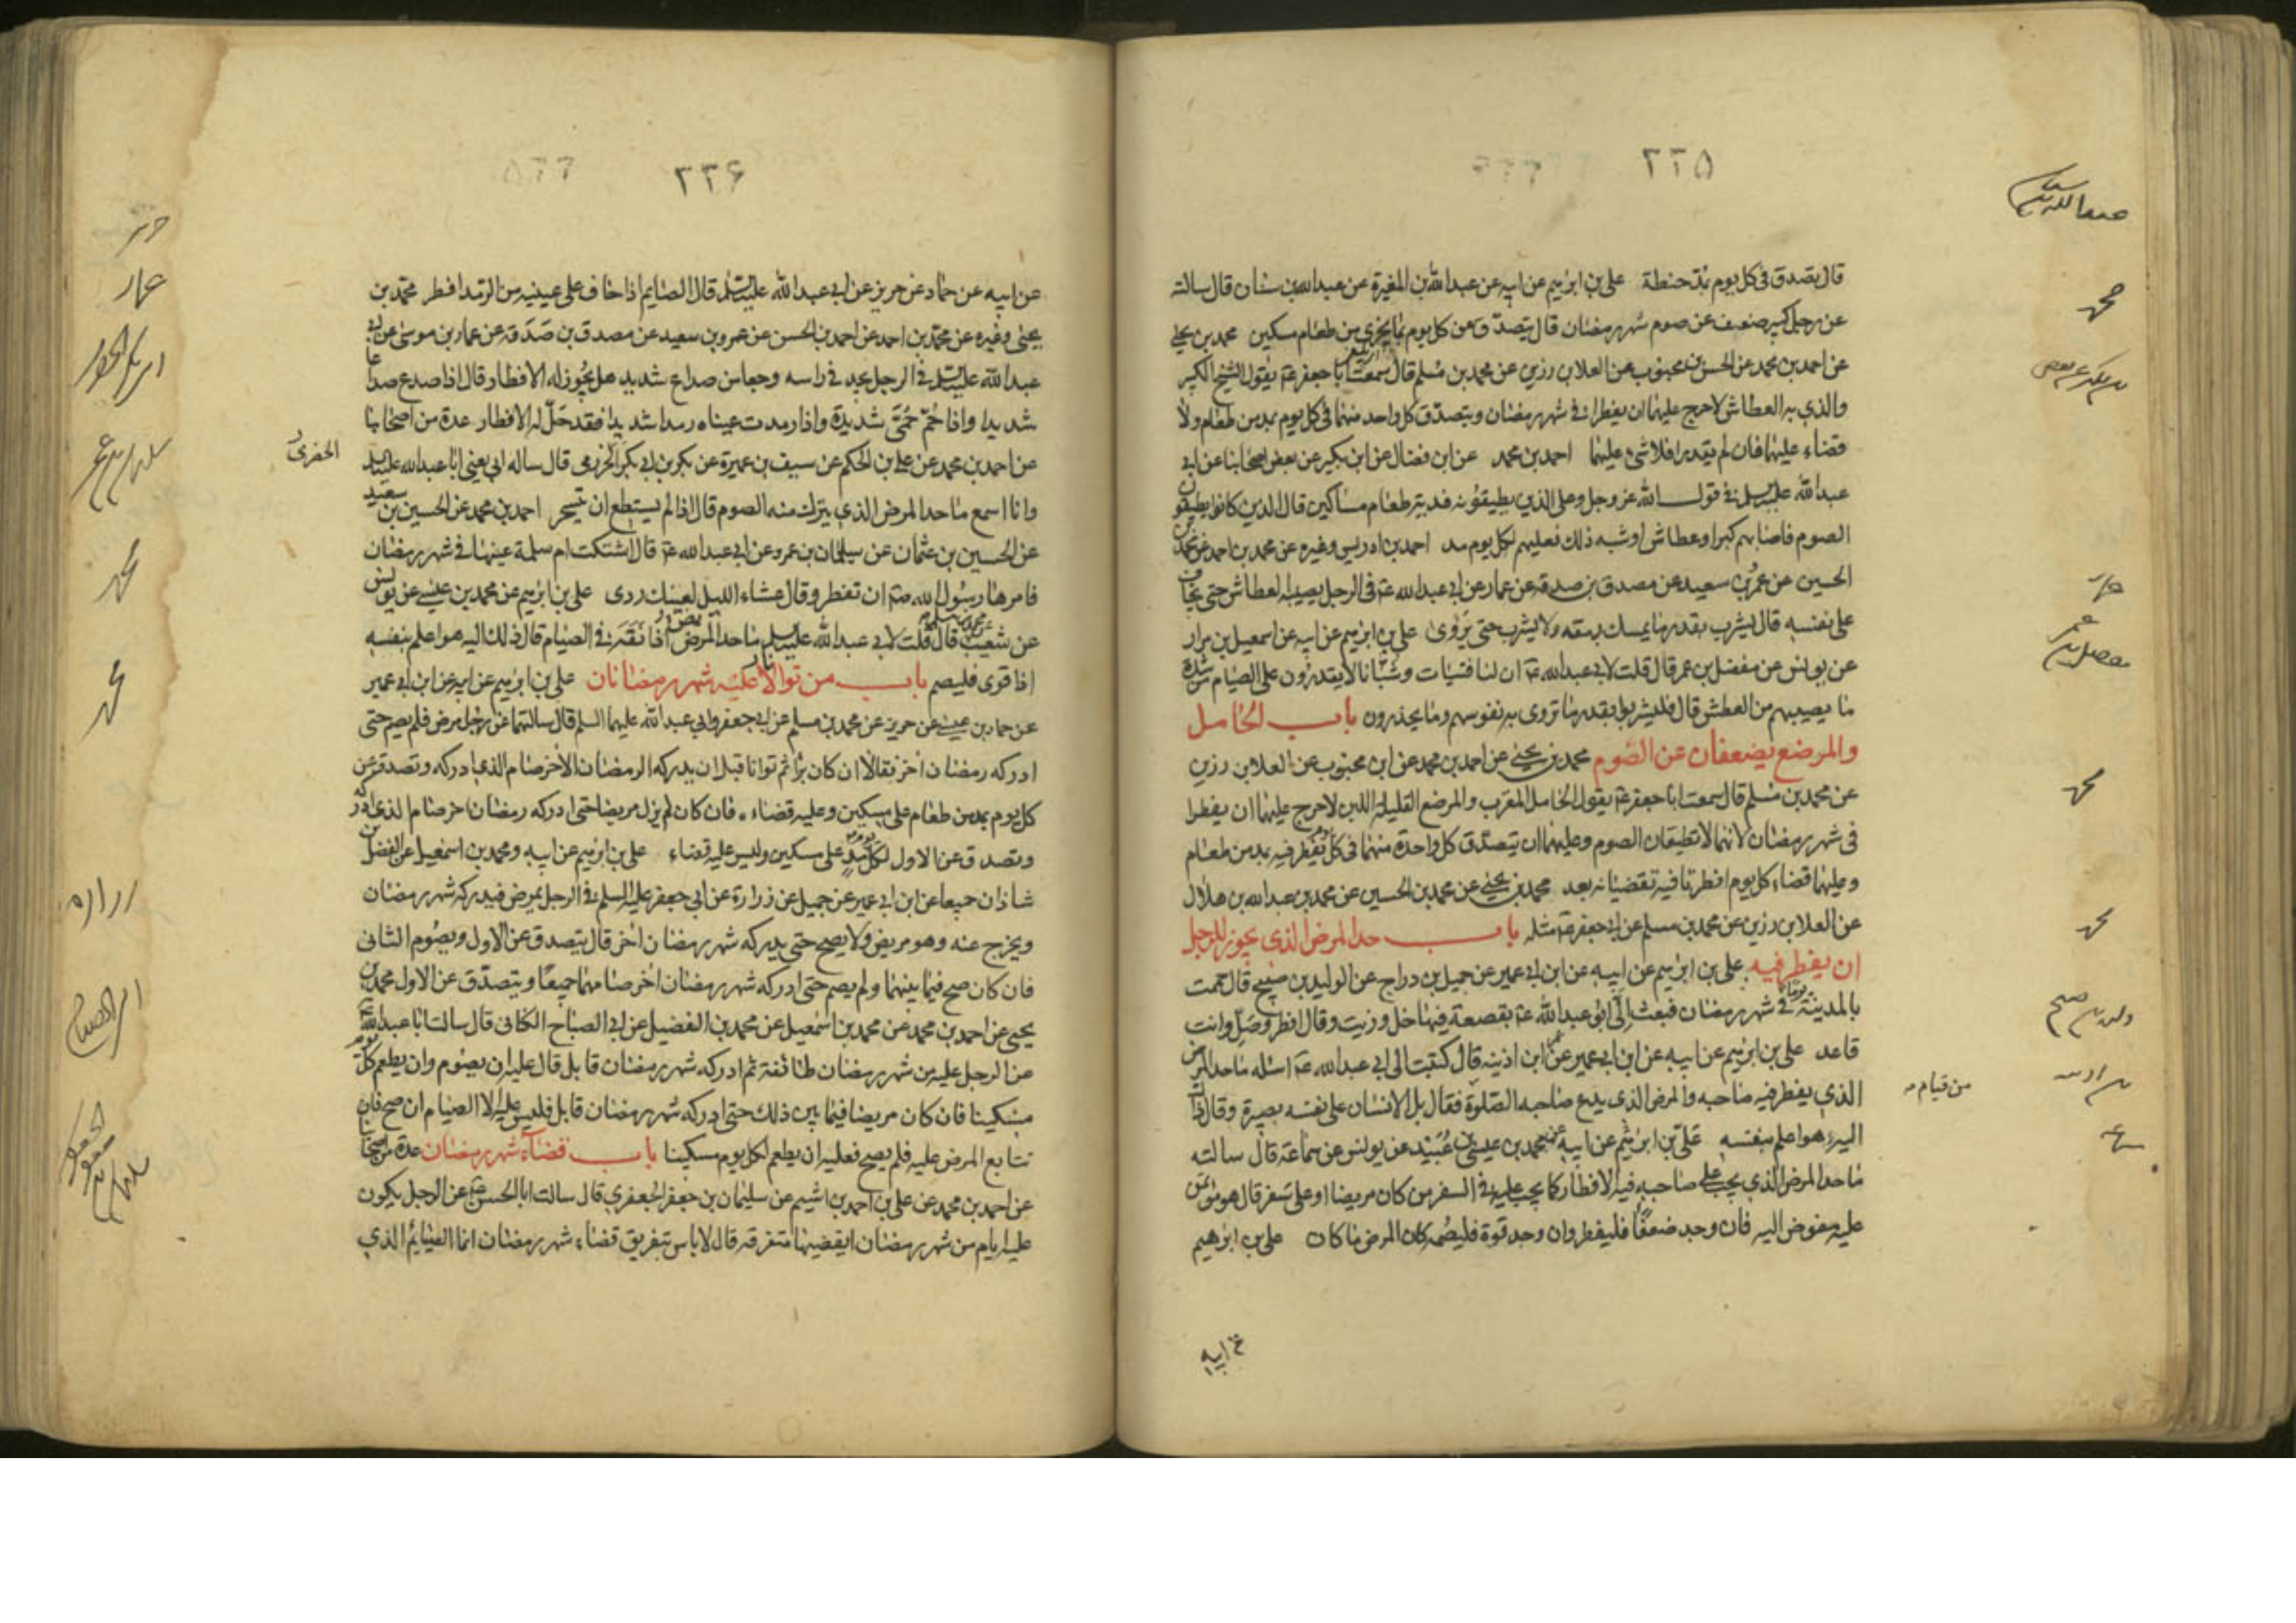 ٢٢٥
قال يصدق في كل يوم بمد حنطة علي بن ابرهيم عن ابيه عن عبد الله بن المغيرة عن عبد الله بن سنان قال سالته
عن رجل كبير ضعف عن صوم شهر رمضان قال يتصدق عن كل يوم بما يجزي من طعام مسكين محمد بن يحيى
عن احمد بن محمد عن الحسن بن محبوب عن العلا بن رزين عن محمد بن مسلم قال سمعت ابا جعفر ع يقول الشيخ الكبير
والذي به العطاش لا حرج عليهما ان يفطرا في شهر رمضان ويتصدق كل واحد منهما في كل يوم بمد من طعام ولا
قضاء عليهما فان لم يقدرا فلا شئ عليهما احمد بن محمد عن ابن فضال عن ابن بكير عن بعض اصحابنا عن ابي
عبد الله عليه السلم في قول الله عز وجل وعلى الذين يطيقونه فدية طعام مساكين قال الذين كانوا يطيقون
الصوم فاصابهم كبر او عطاش او شبه ذلك فعليهم لكل يوم مد احمد بن ادريس وغيره عن محمد بن احمد عن محمد بن
الحسين عن عمرو بن سعيد عن مصدق بن صدقة عن عمار عن ابي عبد الله ع في الرجل يصيبه العطاش حتى يخاف
على نفسه قال يشرب بقدر ما يمسك رمقه ولا يشرب حتى يروى علي بن ابرهيم عن ابيه عن اسمعيل بن مرار
عن يونس عن مفضل بن عمر قال قلت لابي عبد الله ع ان لنا فتيات وشبانا لا يقدرون على الصيام من شدة
ما يصيبهم من العطش قال فليشربوا بقدر ما تروى به نفوسهم وما يحذرون باب الحامل
والمرضع يضعفان عن الصوم محمد بن يحيى عن احمد بن محمد عن ابن محبوب عن العلا بن رزين
عن محمد بن مسلم قال سمعت ابا جعفر ع يقول الحامل المقرب والمرضع القليلة اللبن لا حرج عليهما ان يفطرا
في شهر رمضان لانهما لا تطيقان الصوم وعليهما ان يتصدق كل واحدة منهما في كل يوم يفطر فيه بمد من طعام
وعليهما قضاء كل يوم افطرتا فيه تقضيانه بعد محمد بن يحيى عن محمد بن الحسين عن محمد بن عبد الله بن هلال
عن العلا بن رزين عن محمد بن مسلم عن ابي جعفر ع مثله باب حد المرض الذي يجوز للرجل
ان يفطر فيه علي بن ابرهيم عن ابيه عن ابن ابي عمير عن جميل بن دراج عن الوليد بن صبيح قال حممت
بالمدينة يوما في شهر رمضان فبعث الي ابو عبد الله ع بقصعة فيها خل وزيت وقال افطر وصل وانت
قاعد علي بن ابرهيم عن ابيه عن ابن ابي عمير عن ابن اذينه قال كتبت الى ابي عبد الله ع اسئله ما حد المرض
الذي يفطر فيه صاحبه والمرض الذي يدع صاحبه الصلوة فقال بل الانسان على نفسه بصيرة وقال ذاك
اليه هو اعلم بنفسه علي بن ابرهيم عن ابيه عن محمد بن عيسى بن عبيد عن يونس عن سماعة قال سالته
ما حد المرض الذي يجب على صاحبه فيه الافطار كما يجب عليه في السفر من كان مريضا او على سفر قال هو مؤتمن
عليه مفوض اليه فان وجد ضعفا فليفطر وان وجد قوة فليصمه كان المرض ما كان علي بن ابرهيم
عن ابيه
محمد
عمار
محمد
محمد
من قيام
٢٢۶
عن ابيه عن حماد عن حريز عن ابي عبد الله عليه السلم قال الصايم اذا خاف على عينيه من الرمد افطر محمد بن
يحيى وغيره عن محمد بن احمد عن احمد بن الحسن عن عمرو بن سعيد عن مصدق بن صدقة عن عمار بن موسى عن ابي
عبد الله عليه السلم في الرجل يجد في راسه وجعا من صداع شديد هل يجوز له الافطار قال اذا صدع صداعا
شديدا واذا حم حمى شديدة واذا رمدت عيناه رمدا شديدا فقد حل له الافطار عدة من اصحابنا
عن احمد بن محمد عن علي بن الحكم عن سيف بن عميرة عن بكر بن ابي بكر الحزرمي قال ساله ابي يعني ابا عبد الله عليه السلم
وانا اسمع ما حد المرض الذي يترك منه الصوم قال اذا لم يستطع ان يتسحر احمد بن محمد عن الحسين بن سعيد
عن الحسين بن عثمان عن سليمان بن عمرو عن ابي عبد الله ع قال اشتكت ام سلمة عينها في شهر رمضان
فامرها رسول الله صه ان تفطر وقال عشاء الليل لعينك ردى علي بن ابرهيم عن محمد بن عيسى عن يونس
عن شعيب عن محمد بن مسلم قال قلت لابي عبد الله عليه السلم ما حد المرض اذا نقه في الصيام قال ذلك اليه هو اعلم بنفسه
اذا قوى فليصم باب من توالا عليه شهر رمضانان علي بن ابرهيم عن ابيه عن ابن ابي عمير
عن حماد بن عيسى عن حريز عن محمد بن مسلم عن ابي جعفر وابي عبد الله عليهما السلم قال سالتهما عن رجل مرض فلم يصم حتى
ادركه رمضان اخر فقالا ان كان برأ ثم توانا قبل ان يدركه الرمضان الاخر صام الذي ادركه وتصدق عن
كل يوم بمد من طعام على مسكين وعليه قضاء، فان كان لم يزل مريضا حتى ادركه رمضان اخر صام الذي ادركه
وتصدق عن الاول لكل يوم مد على مسكين وليس عليه قضاء علي بن ابرهيم عن ابيه ومحمد بن اسمعيل عن الفضل بن
شاذان جميعا عن ابن ابي عمير عن جميل عن زرارة عن ابي جعفر عليه السلم في الرجل يمرض فيدركه شهر رمضان
ويخرج عنه وهو مريض ولا يصح حتى يدركه شهر رمضان اخر قال يتصدق عن الاول ويصوم الثاني
فان كان صح فيما بينهما ولم يصم حتى ادركه شهر رمضان اخر صامهما جميعا ويتصدق عن الاول محمد بن
يحيى عن احمد بن محمد عن محمد بن اسمعيل عن محمد بن الفضيل عن ابي الصباح الكناني قال سالت ابا عبد الله ع
عن الرجل عليه من شهر رمضان طائفة ثم ادركه شهر رمضان قابل قال عليه ان يصوم وان يطعم كل يوم
مسكينا فان كان مريضا فيما بين ذلك حتى ادركه شهر رمضان قابل فليس عليه الا الصيام ان صح فان
تتابع المرض عليه فلم يصح فعليه ان يطعم لكل يوم مسكينا باب قضاء شهر رمضان عدة من اصحابنا
عن احمد بن محمد عن علي بن احمد بن اشيم عن سليمان بن جعفر الجعفري قال سالت ابا الحسن ع عن الرجل يكون
عليه ايام من شهر رمضان ايقضيها متفرقه قال لا باس بتفريق قضاء شهر رمضان انما الصيام الذي
عمار
محمد
محمد
زراره